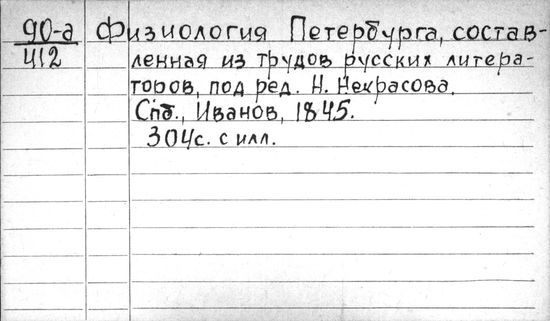 90-а Физиология Петербурга, состав-
412 ленная из трудов русских литера-
торов, под ред. Н. Некрасова.
Спб., Иванов, 1845.
304с. с илл.